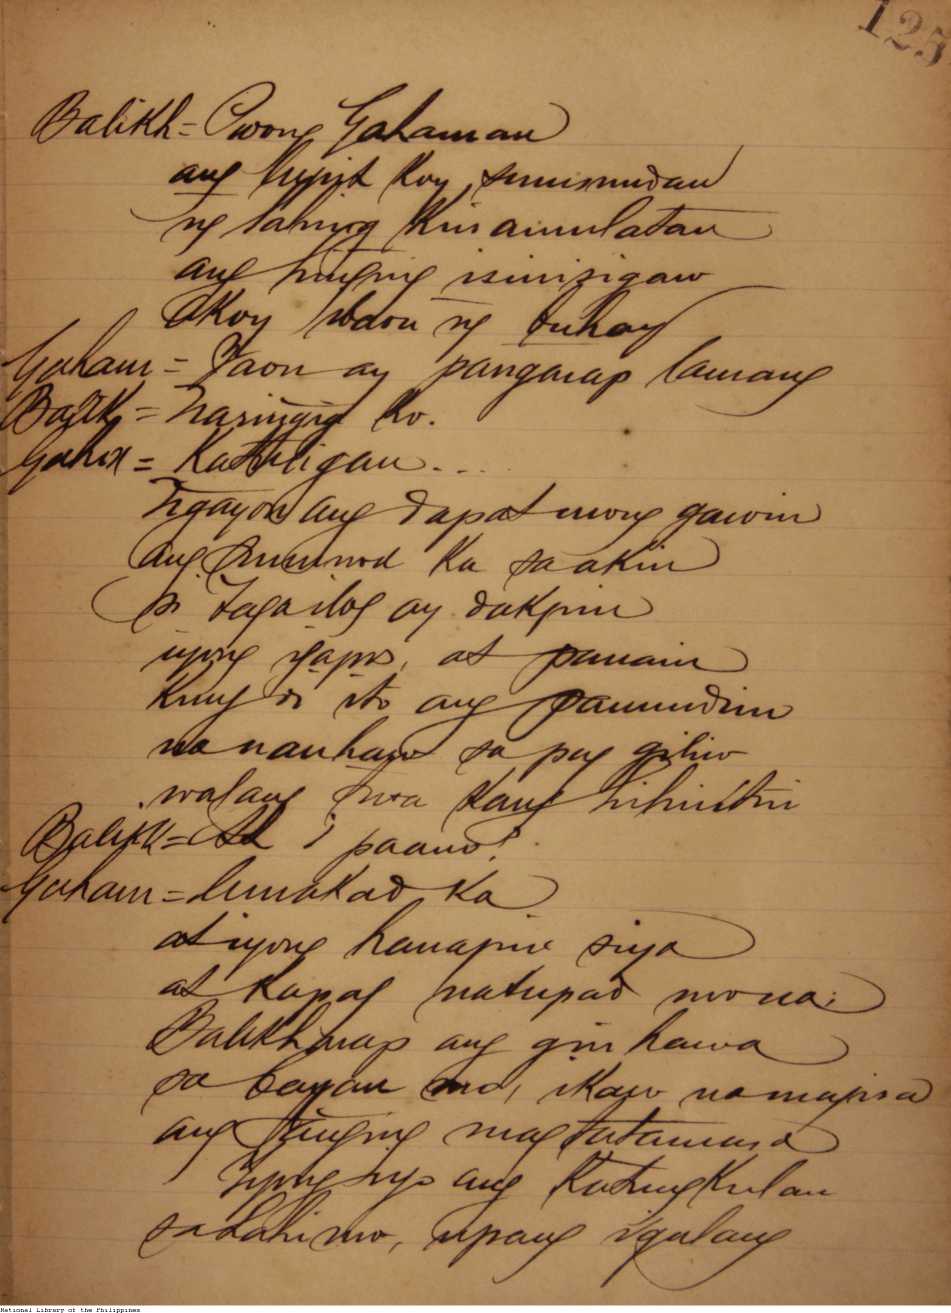 125
Balikh = Poong Gahaman
ang hapit koy, sinusundan
ng lahing kinamulatan
ang hinging isinisigaw
akoy ng buhay
Gaham = Iaon ay pangarap lamang
Balik = Naririnig ko.
Gaham = Kathiligan....
Ngayon ang dapat mong gawin
ang sumunod ka sa akin
si Taga ilog ay dakpin
iyong igapos, at panain
kung di ito ang panimdim
na nanhaw sa pag giliw
walang awa kang hihintin
Balikh = At ¿ paano?
Gaham = lumakad ka
at iyong hanapin siya
at kapag natupad mo na;
Balikhmap ang ginhawa
sa bayan mo, ikaw na magisa
ang tanging magtatamasa
Iyong iyo ang katungkulan
sa lahi mo, upang igalang
National Library of the Philippines